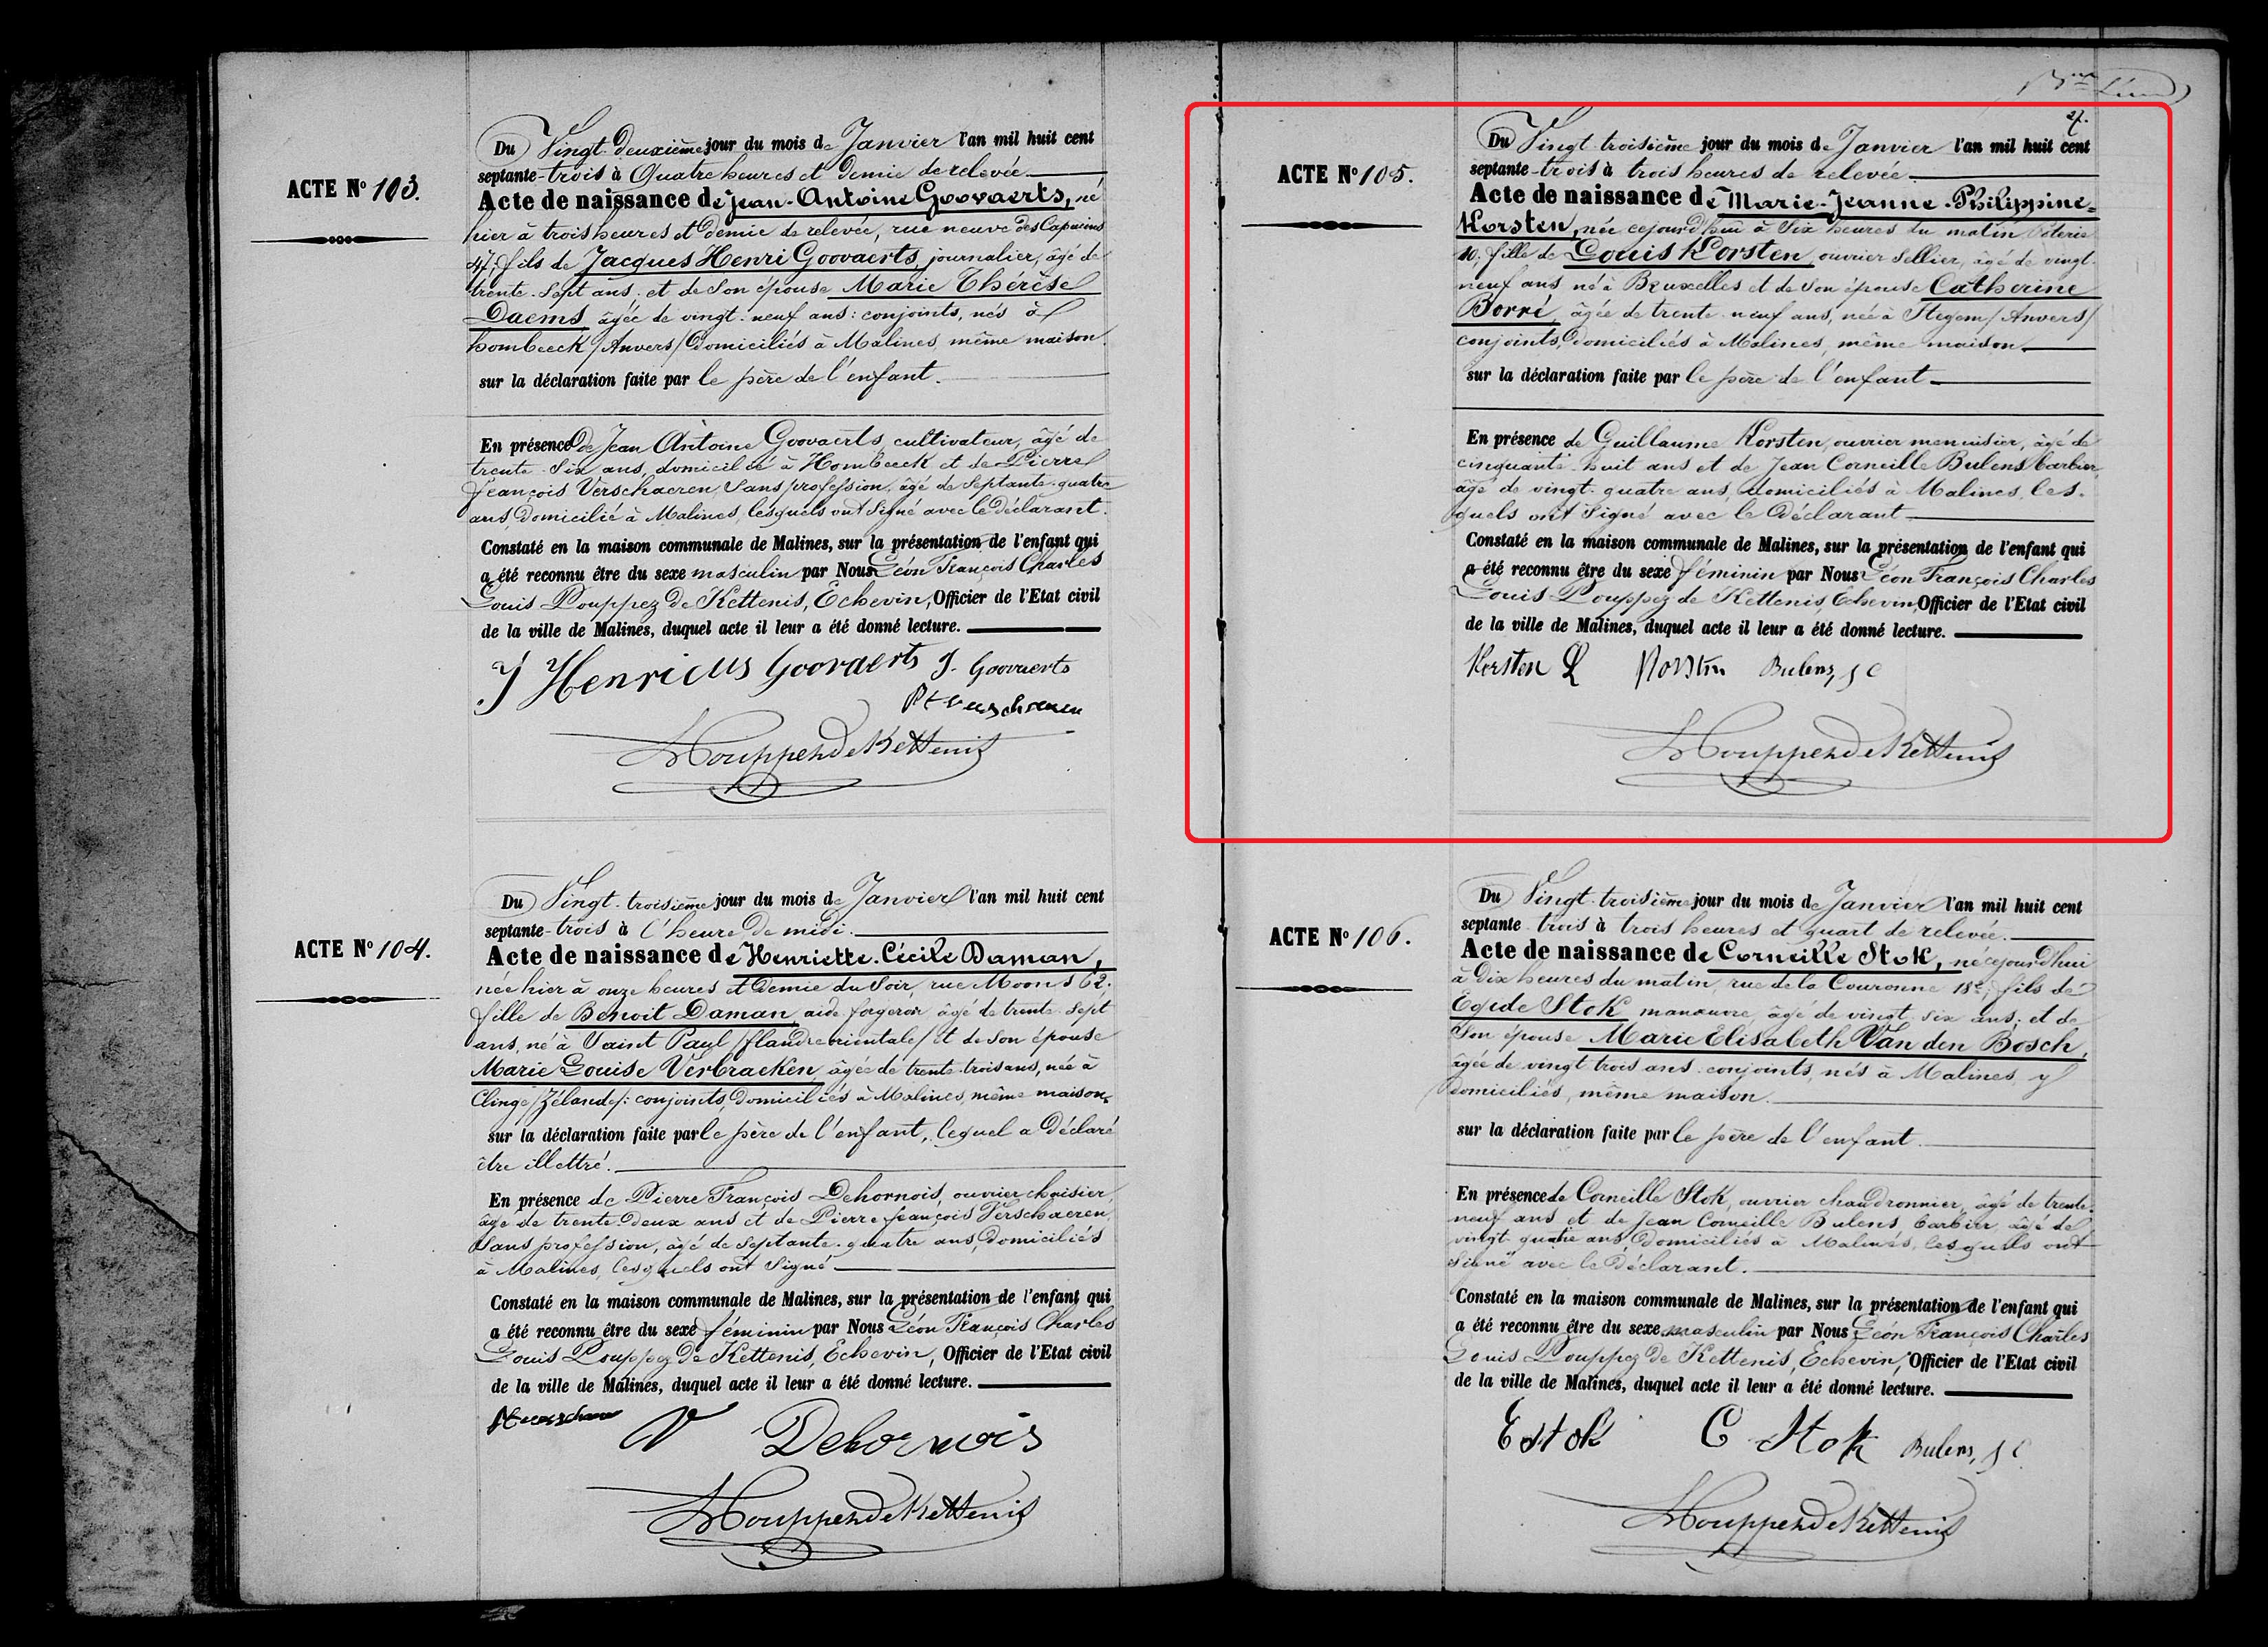 ACTE Nº 103.
Du Vingt-deuxième jour du mois de Janvier l'an mil huit cent
septante-trois à Quatre heures et demie de relevée.
Acte de naissance de Jean-Antoine Goovaerts, né
hier à trois heures et demie de relevée, rue neuve des Capucins
47, fils de Jacques Henri Goovaerts, journalier, âgé de
trente-sept ans et de son épouse Marie Thérèse
Daems âgée de vingt-neuf ans: conjoints, nés à
hombeeck /Anvers/ domiciliés à Malines même maison.
sur la déclaration faite par le père de l'enfant.
En présence de Jean Antoine Goovaerts, cultivateur, âgé de
trente-six ans, domicilié à Hombeeck et de Pierre
François Verschaeren, sans profession, âgé de septante-quatre
ans, domicilié à Malines, lesquels ont signé avec le déclarant.
Constaté en la maison communale de Malines, sur la présentation de l'enfant qui
a été reconnu être du sexe masculin par Nous Léon François Charles
Louis Pouppez de Kettenis, Echevin, Officier de l'Etat civil
de la ville de Malines, duquel acte il leur a été donné lecture.
J Henricus Goovaerts J. Goovaerts
Pouppez de Kettenis
ACTE Nº 104.
Du Vingt-troisième jour du mois de Janvier l'an mil huit cent
septante-trois à l'heure de midi.
Acte de naissance de Henriette-Cécile Daman,
née hier à onze heures et demie du soir, rue Moons 62.
fille de Benoit Daman, aide forgeron âgé de trente-sept
ans, né à Saint Paul /flandre orientale/ et de son épouse
Marie Louise Verbraeken, âgée de trente-trois ans, née à
Clinge /Zélande/: conjoints, domiciliés à Malines, même maison.
sur la déclaration faite par le père de l'enfant, lequel a déclaré
être illettré.
En présence de Pierre François Dehornois, ouvrier chaisier,
âgé de trente-deux ans et de Pierre françois Verschaeren,
sans profession, âgé de septante-quatre ans, domiciliés
à Malines, lesquels ont signé
Constaté en la maison communale de Malines, sur la présentation de l'enfant qui
a été reconnu être du sexe féminin par Nous Léon François Charles
Louis Pouppez de Kettenis, Echevin, Officier de l'Etat civil
de la ville de Malines, duquel acte il leur a été donné lecture.
Dehornois
Pouppez de Kettenis
ACTE Nº 105.
Du Vingt-troisième jour du mois de Janvier l'an mil huit cent
septante-trois à trois heures de relevée.
Acte de naissance de Marie-Jeanne-Philippine-
Korsten, née cejourd'hui à six heures du matin
10, fille de Louis Korsten, ouvrier sellier, âgé de vingt-
neuf ans né à Bruxelles et de son épouse Catherine
Borré, âgée de trente-neuf ans, née à Itegem /Anvers/
conjoints, domiciliés à Malines, même maison.
sur la déclaration faite par le père de l'enfant
En présence de Guillaume Korsten, ouvrier menuisier, âgé de
cinquante-huit ans et de Jean Corneille Bulens barbier,
âgé de vingt-quatre ans, domiciliés à Malines, les-
quels ont signé avec le Déclarant
Constaté en la maison communale de Malines, sur la présentation de l'enfant qui
a été reconnu être du sexe féminin par Nous Léon François Charles
Louis Pouppez de Kettenis, Echevin, Officier de l'Etat civil
de la ville de Malines, duquel acte il leur a été donné lecture.
Korsten L Korsten Bulens, J C
Pouppez de Kettenis
ACTE Nº 106.
Du Vingt-troisième jour du mois de Janvier l'an mil huit cent
septante-trois à trois heures et quart de relevée.
Acte de naissance de Corneille Stok, né cejourd'hui
à dix heures du matin, rue de la Couronne 18, fils de
Egide Stok manœuvre, âgé de vingt-six ans; et de
Son épouse Marie Elisabeth Van den Bosch,
âgée de vingt-trois ans conjoints, nés à Malines, y
domiciliés, même maison.
sur la déclaration faite par le père de l'enfant.
En présence de Corneille Stok, ouvrier chaudronnier, âgé de trente-
neuf ans et de Jean Corneille Bulens, barbier, âgé de
vingt-quatre ans, domiciliés à Malines, lesquels ont
signé avec le Déclarant.
Constaté en la maison communale de Malines, sur la présentation de l'enfant qui
a été reconnu être du sexe masculin par Nous Léon François Charles
Louis Pouppez de Kettenis, Echevin, Officier de l'Etat civil
de la ville de Malines, duquel acte il leur a été donné lecture.
E Stok C Stok Bulens, J C
Pouppez de Kettenis